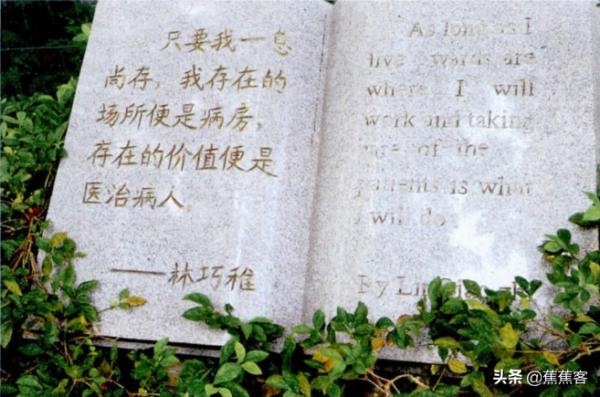 只要我一息
尚存，我存在的
场所便是病房，
存在的价值便是
医治病人。
——林巧稚
As long as I
live wards are
where I will
work and taking
of the
patients is what
I will do
By Lin
头条 @蕉蕉客